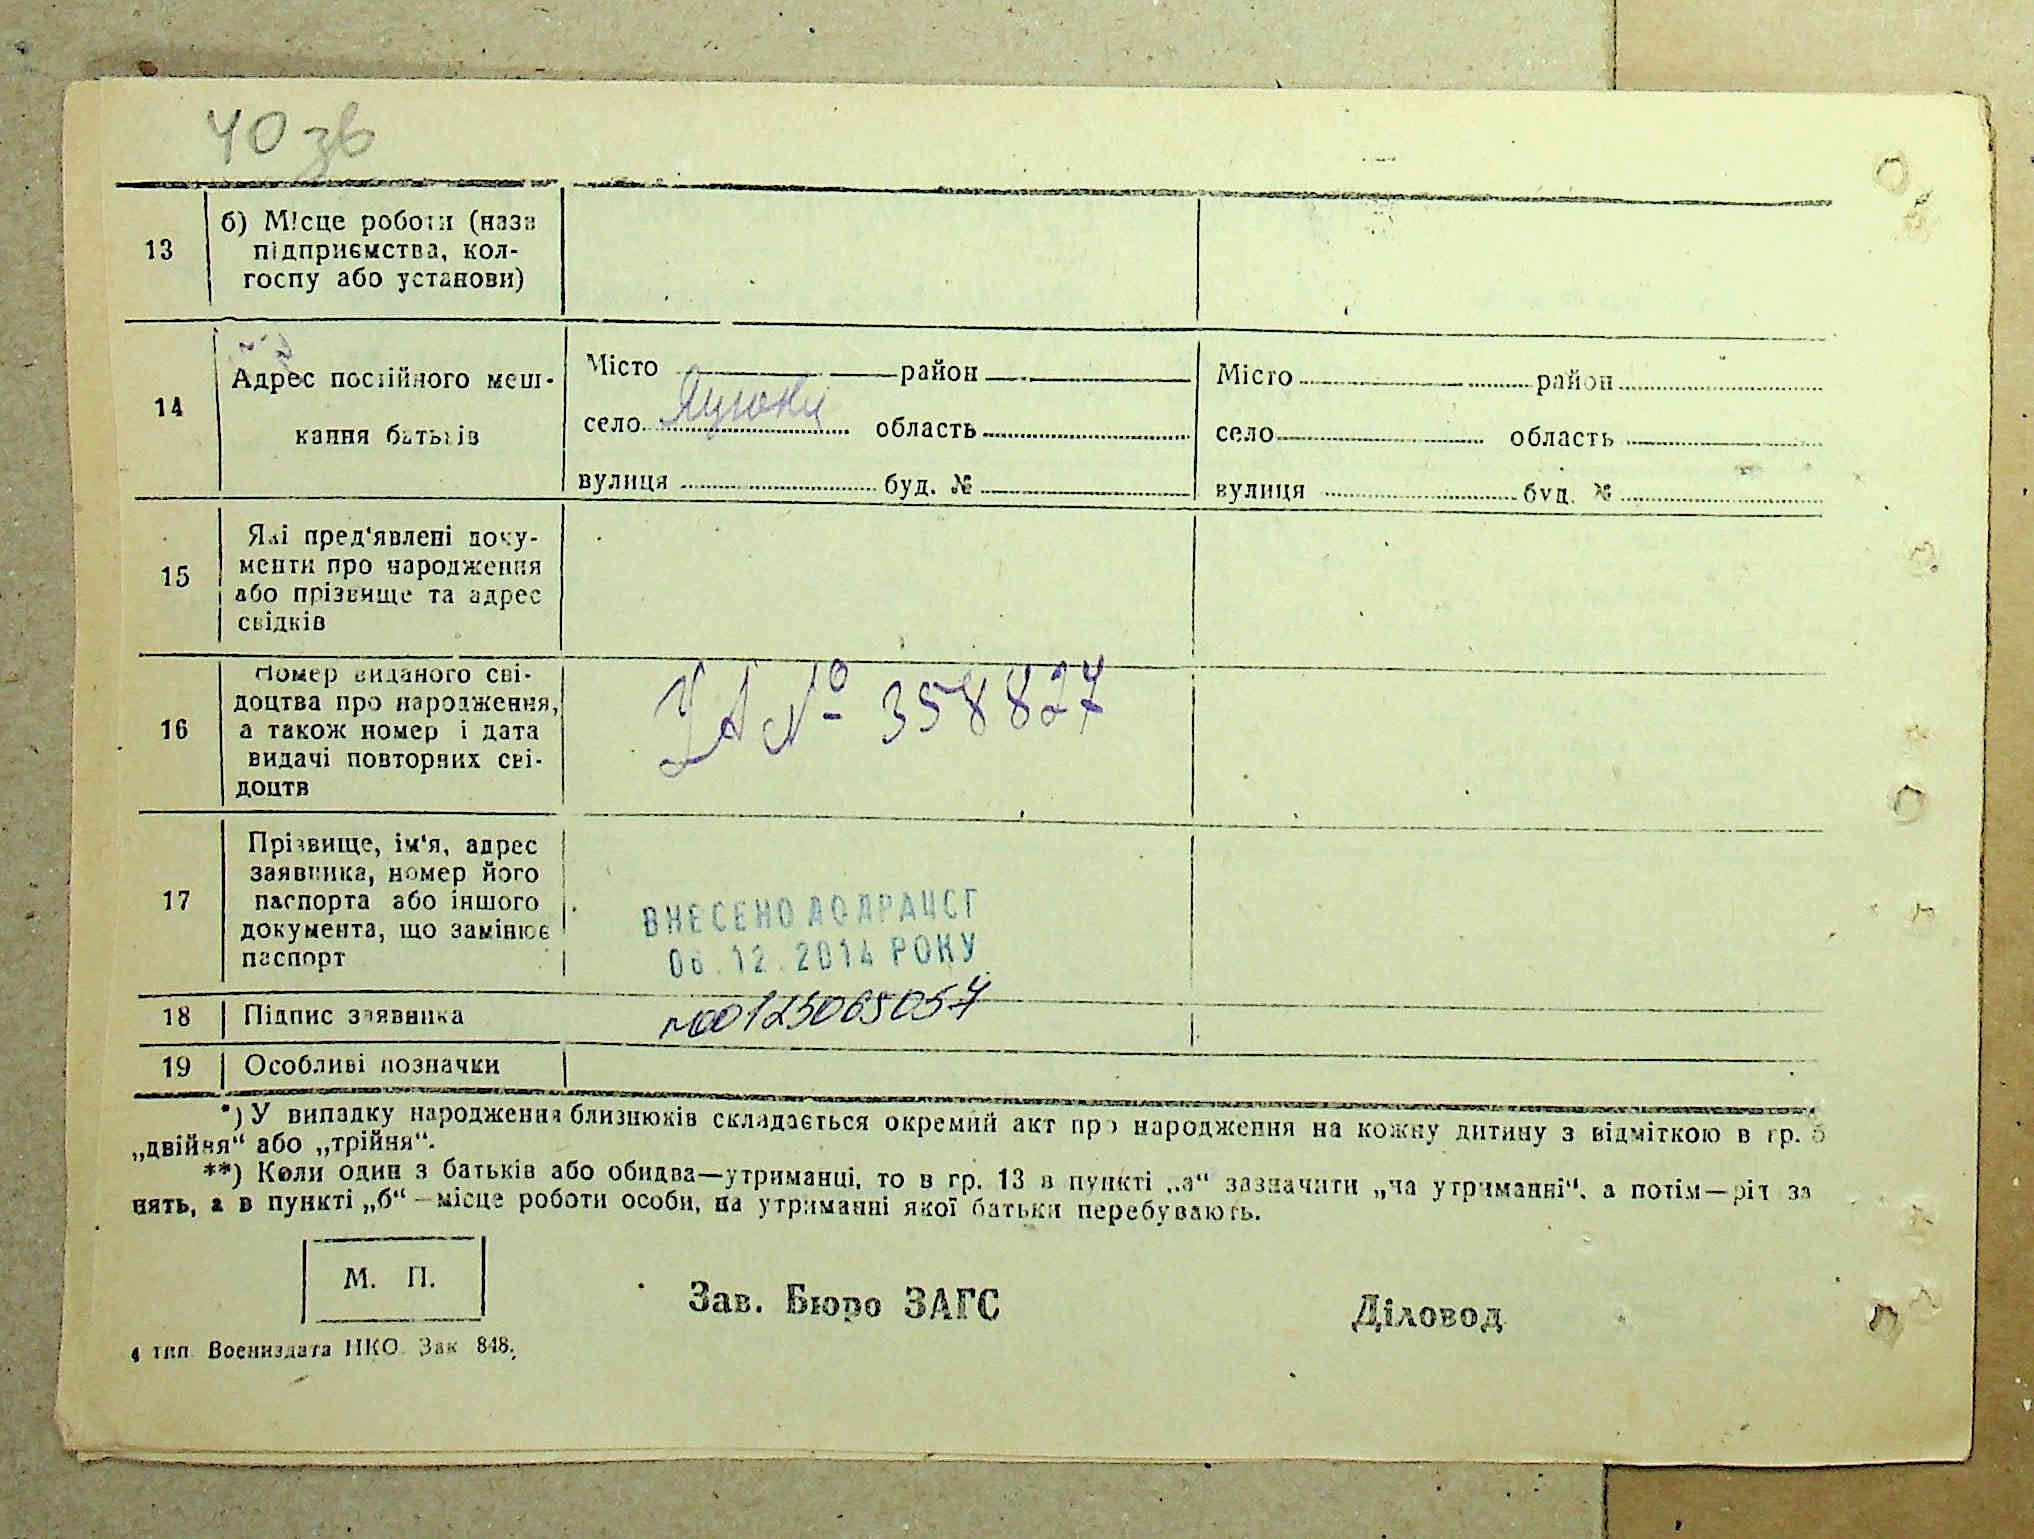 40 зв
13 б) Місце роботи (назва
підприємства, кол-
госпу або установи)
14 Адрес постійного меш-
кання батьків
Місто район
село область
вулиця буд. №
Місто район
село область
вулиця буд. №
15 Які пред'явлені доку-
менти про народження
або прізвище та адрес
свідків
16 Номер виданого сві-
доцтва про народження,
а також номер і дата
видачі повторних сві-
доцтв
УА № 358827
17 Прізвище, ім'я, адрес
заявника, номер його
паспорта або іншого
документа, що замінює
паспорт
ВНЕСЕНО ДО ДРАЦСГ
06.12.2014 РОКУ
18 Підпис заявника
00125065057
19 Особливі позначки
*) У випадку народження близнюків складається окремий акт про народження на кожну дитину з відміткою в гр. 5
„двійня“ або „трійня“.
**) Коли один з батьків або обидва—утриманці, то в гр. 13 в пункті „а“ зазначити „на утриманні“, а потім—рід за
нять, а в пункті „б“—місце роботи особи, на утриманні якої батьки перебувають.
М. П.
Зав. Бюро ЗАГС
Діловод
4 тип. Воениздата НКО. Зак 848.